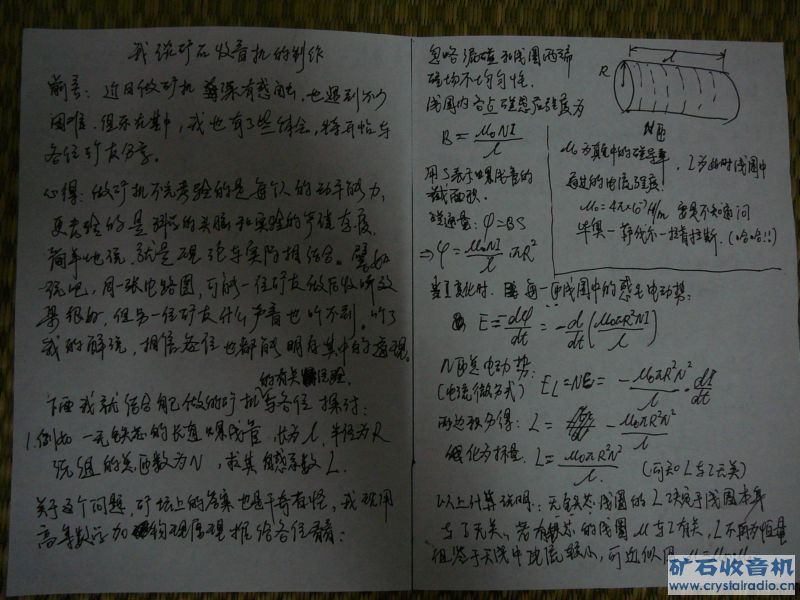 我谈矿石收音机的制作
前言：近日做矿机 深有感触，也遇到不少
困难，但乐在其中，我也有了些体会，特再恰与
各位矿友分享。
心得：做矿机不光考验的是每个人的动手能力，
更考验的是 科学的头脑和实验的严谨态度，
简单地说，就是理论与实际相结合。譬如
说吧，同一张电路图，可能一位矿友做后收听效
果很好，但另一位矿友什么声音也听不到。听了
我的解说，相信各位也都能明白其中的道理。
的有关经验
下面我就结合自己做的矿机与各位探讨：
1.例如 一无铁芯的长直螺线管，长为l，半径为R
绕组的总匝数为N，求其自感系数L。
关于这个问题，矿坛上的答案也是千奇百怪，我现用
高等数学加物理原理推给各位看看：
忽略漏磁和线圈两端
磁场不均匀性，
线圈内各点磁感应强度为
B = μ₀NI/l
用S表示螺线管的
截面积，
磁通量：φ=BS
⇒ φ = μ₀NI/l · πR²
l
R
N匝
μ₀为真空中的磁导率，I为此时线圈中
通过的电流强度！
μ₀=4π×10⁻⁷H/m 要是不知道问
毕奥—萨伐尔—拉普拉斯。（哈哈!!）
当I变化时，每一匝线圈中的感生电动势：
E = -dφ/dt = -d/dt(μ₀πR²NI/l)
N匝总电动势：
（电流微分式） E_L=NE= -μ₀πR²N²/l · dI/dt
两边积分得：L = -μ₀πR²N²/l
纯化为标量：L = μ₀πR²N²/l （可知L与I无关）
以上计算说明：无铁芯线圈的L决定于线圈本身
与I无关，若有铁芯的线圈μ与I有关，L不再为恒量
但鉴于天线中电流较小，可近似用
矿石收音机
www.crystalradio.cn